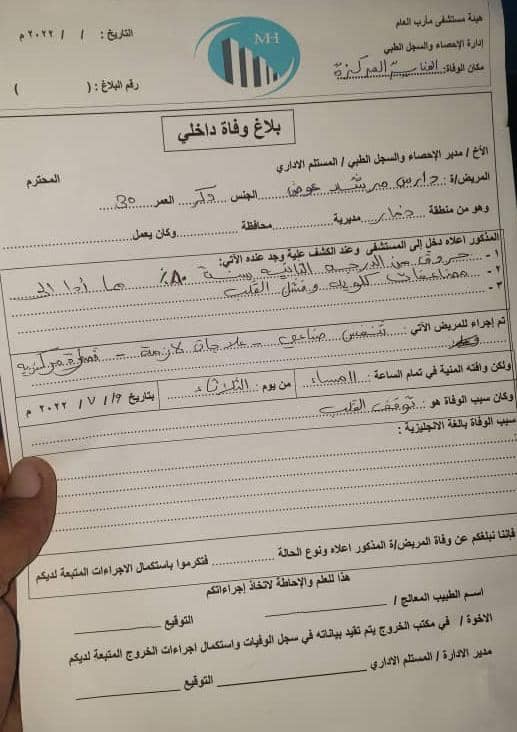 هيئة مستشفى مأرب العام
إدارة الإحصاء والسجل الطبي
مكان الوفاة: العناية المركزة
MH
التاريخ: / / ٢٠٢٢ م
رقم البلاغ: ( )
بلاغ وفاة داخلي
الأخ / مدير الإحصاء والسجل الطبي / المستلم الاداري المحترم
المريض/ة: دارس مرشد عوض الجنس ذكر العمر 30
وهو من منطقة ذمار مديرية محافظة وكان يعمل
المذكور اعلاه دخل إلى المستشفى وعند الكشف علية وجد عنده الآتي:
١ - حروق من الدرجة الثانية بنسبة ٨٠٪ مما أدا إلى
٢ - مضاعفات وفشل القلب
٣ -
تم إجراء للمريض الآتي: تنفس صناعي - علاجات لازمة - قسطرة مركزية
ولكن وافته المنية في تمام الساعة: المساء من يوم: الثلاثاء بتاريخ ١٩ / ٧ / ٢٠٢٢ م
وكان سبب الوفاة هو: توقف القلب
سبب الوفاة بالغة الانجليزية:
فإننا نبلغكم عن وفاة المريض/ة المذكور اعلاه ونوع الحالة فتكرموا باستكمال الاجراءات المتبعة لديكم
هذا للعلم والإحاطة لاتخاذ إجراءاتكم
اسم الطبيب المعالج / التوقيع
الاخوة / في مكتب الخروج يتم تقيد بياناته في سجل الوفيات واستكمال اجراءات الخروج المتبعة لديكم
مدير الادارة / المستلم الاداري التوقيع